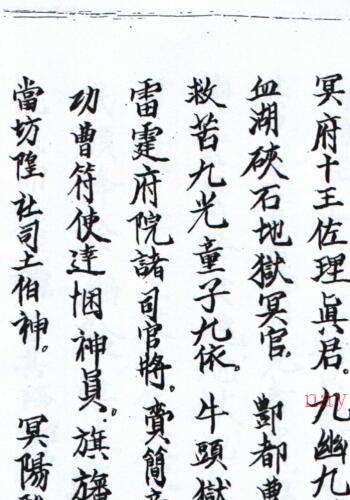 冥府十王佐理眞君。九幽九
血湖硤石地獄冥官。酆都曹
救苦九光童子九依。牛頭獄
雷霆府院諸司官將。賫簡童
功曹符使達悃神員。旗旛
當坊隍社司土伯神。冥陽